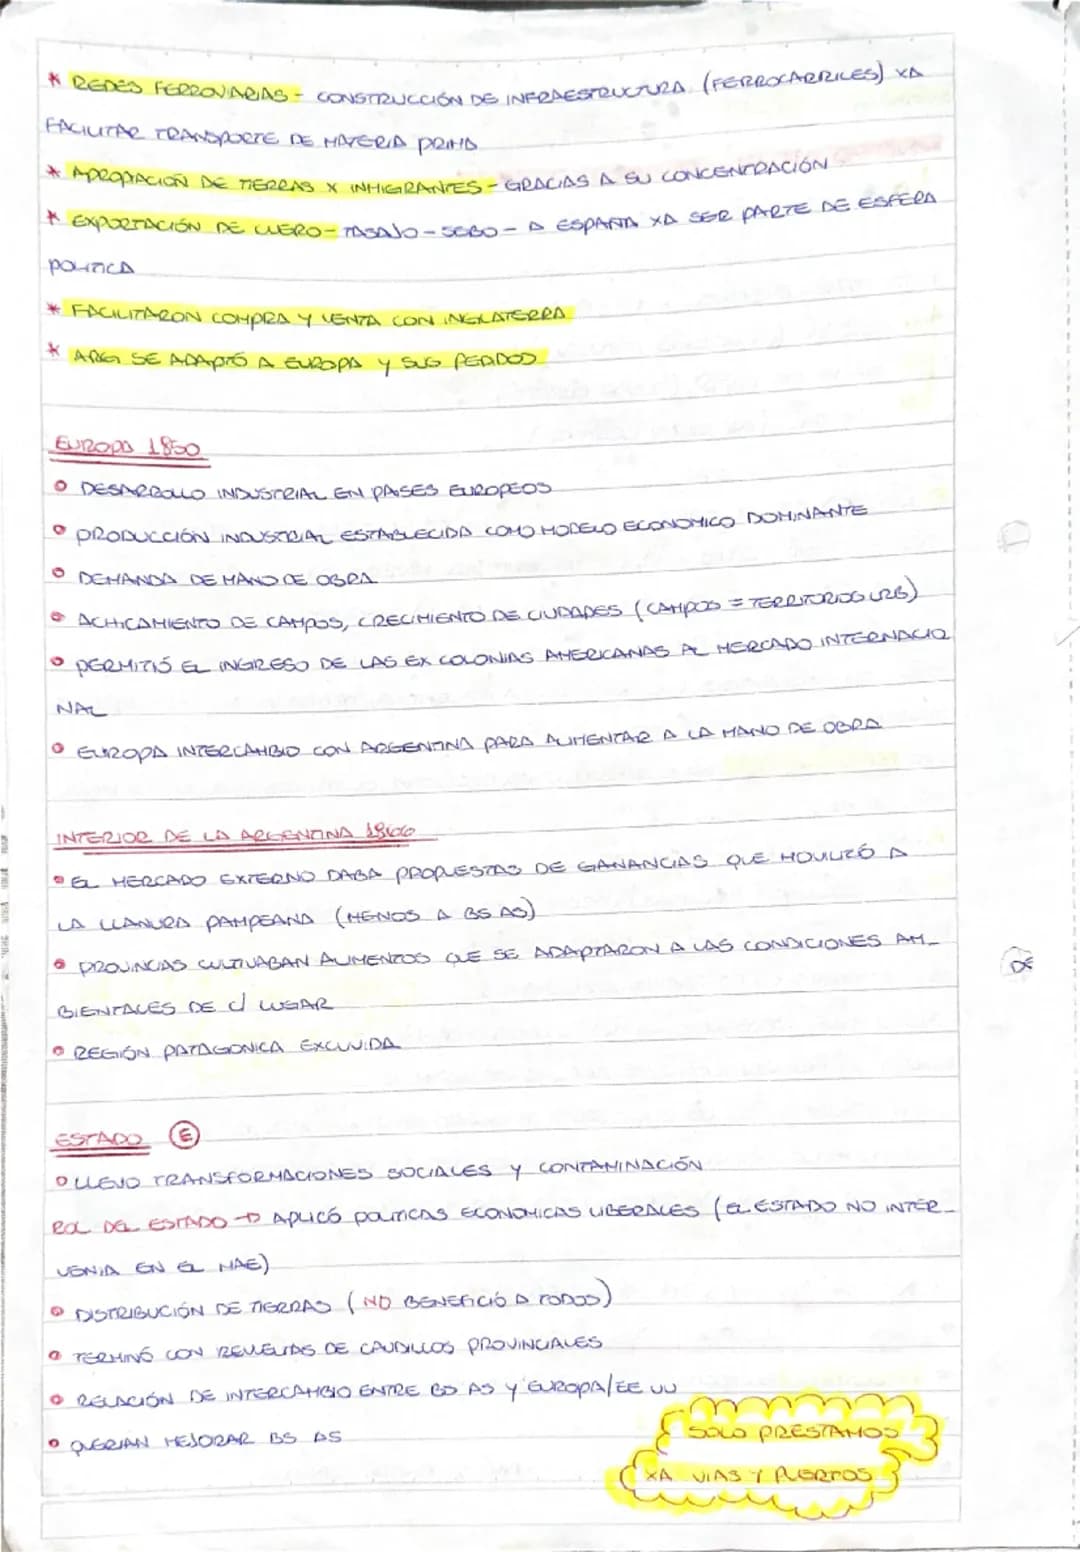 * REDES FERROVIARIAS - CONSTRUCCIÓN DE INFRAESTRUCTURA (FERROCARRILES) XA
FACILITAR TRANSPORTE DE MATERIA PRIMA
* APROPIACIÓN DE TIERRAS X INMIGRANTES - GRACIAS A SU CONCENTRACIÓN
* EXPORTACIÓN DE CUERO - TASAJO - SEBO - A ESPAÑA XA SER PARTE DE ESFERA
POLITICA
* FACILITARON COMPRA Y VENTA CON INGLATERRA
* ARG SE ADAPTÓ A EUROPA Y SUS PEDIDOS
EUROPA 1850
° DESARROLLO INDUSTRIAL EN PAISES EUROPEOS
° PRODUCCIÓN INDUSTRIAL ESTABLECIDA COMO MODELO ECONOMICO DOMINANTE
° DEMANDA DE MANO DE OBRA
° ACHICAMIENTO DE CAMPOS, CRECIMIENTO DE CIUDADES (CAMPOS = TERRITORIOS URB)
° PERMITIÓ EL INGRESO DE LAS EX COLONIAS AMERICANAS AL MERCADO INTERNACIO
NAL
° EUROPA INTERCAMBIO CON ARGENTINA PARA ALIMENTAR A LA MANO DE OBRA
INTERIOR DE LA ARGENTINA
° EL MERCADO EXTERNO DABA PROPUESTAS DE GANANCIAS QUE MOVILIZÓ A
LA LLANURA PAMPEANA (MENOS A BS AS)
° PROVINCIAS CULTIVABAN ALIMENTOS QUE SE ADAPTARON A LAS CONDICIONES AM-
BIENTALES DE C/ LUGAR
° REGIÓN PATAGONICA EXCLUIDA
ESTADO E
° LLEVO TRANSFORMACIONES SOCIALES Y CONTAMINACIÓN
ROL DEL ESTADO → APLICÓ POLITICAS ECONOMICAS LIBERALES (EL ESTADO NO INTER-
VENIA EN EL MAE)
° DISTRIBUCIÓN DE TIERRAS (NO BENEFICIÓ A TODOS)
° TERMINÓ CON REVUELTAS DE CAUDILLOS PROVINCIALES
° RELACIÓN DE INTERCAMBIO ENTRE BS AS Y EUROPA/EE UU
° QUERIAN MEJORAR BS AS
SOLO PRESTAMOS
XA VIAS Y PUERTOS
DE